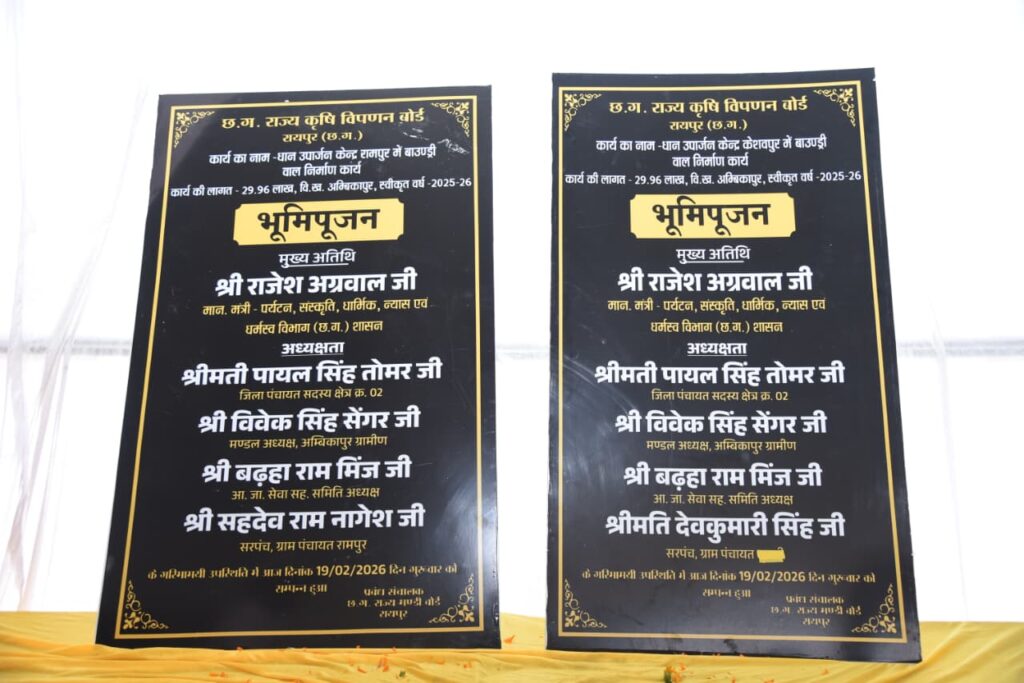 छ.ग. राज्य कृषि विपणन बोर्ड
रायपुर (छ.ग.)
कार्य का नाम -धान उपार्जन केन्द्र रामपुर में बाउण्ड्री
वाल निर्माण कार्य
कार्य की लागत - 29.96 लाख, वि.ख. अम्बिकापुर, स्वीकृत वर्ष -2025-26
भूमिपूजन
मुख्य अतिथि
श्री राजेश अग्रवाल जी
मान. मंत्री - पर्यटन, संस्कृति, धार्मिक, न्यास एवं
धर्मस्व विभाग (छ.ग.) शासन
अध्यक्षता
श्रीमती पायल सिंह तोमर जी
जिला पंचायत सदस्य क्षेत्र क्र. 02
श्री विवेक सिंह सेंगर जी
मण्डल अध्यक्ष, अम्बिकापुर ग्रामीण
श्री बढ़हा राम मिंज जी
आ. जा. सेवा सह. समिति अध्यक्ष
श्री सहदेव राम नागेश जी
सरपंच, ग्राम पंचायत रामपुर
के गरिमामयी उपस्थिति में आज दिनांक 19/02/2026 दिन गुरूवार को
सम्पन्न हुआ
प्रबंध संचालक
छ.ग. राज्य मण्डी बोर्ड
रायपुर
छ.ग. राज्य कृषि विपणन बोर्ड
रायपुर (छ.ग.)
कार्य का नाम -धान उपार्जन केन्द्र केशवपुर में बाउण्ड्री
वाल निर्माण कार्य
कार्य की लागत - 29.96 लाख, वि.ख. अम्बिकापुर, स्वीकृत वर्ष -2025-26
भूमिपूजन
मुख्य अतिथि
श्री राजेश अग्रवाल जी
मान. मंत्री - पर्यटन, संस्कृति, धार्मिक, न्यास एवं
धर्मस्व विभाग (छ.ग.) शासन
अध्यक्षता
श्रीमती पायल सिंह तोमर जी
जिला पंचायत सदस्य क्षेत्र क्र. 02
श्री विवेक सिंह सेंगर जी
मण्डल अध्यक्ष, अम्बिकापुर ग्रामीण
श्री बढ़हा राम मिंज जी
आ. जा. सेवा सह. समिति अध्यक्ष
श्रीमति देवकुमारी सिंह जी
सरपंच, ग्राम पंचायत
के गरिमामयी उपस्थिति में आज दिनांक 19/02/2026 दिन गुरूवार को
सम्पन्न हुआ
प्रबंध संचालक
छ.ग. राज्य मण्डी बोर्ड
रायपुर